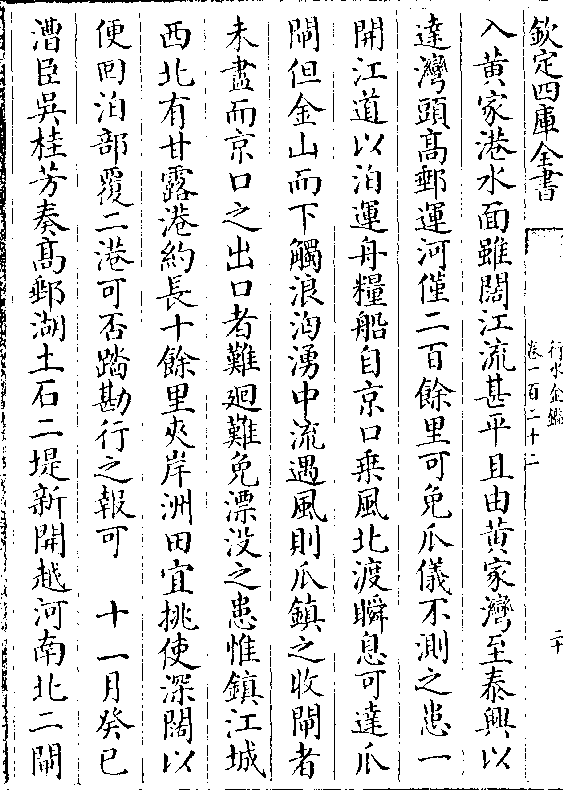 欽定四庫全書
行水金鑑
卷一百二十二
二十
入黃家港水面雖闊江流甚平且由黃家灣至泰興以
達灣頭髙郵運河僅二百餘里可免瓜儀不測之患一
開江道以泊運舟糧船自京口乗風北渡瞬息可達瓜
閘但金山而下觸浪洶湧中流遇風則瓜鎮之收閘者
未盡而京口之出口者難廻難免漂没之患惟鎮江城
西北有甘露港約長十餘里夾岸洲田宜挑使深闊以
便囬泊部覆二港可否踏勘行之報可　十一月癸巳
漕臣吳桂芳奏髙郵湖土石二堤新開越河南北二閘